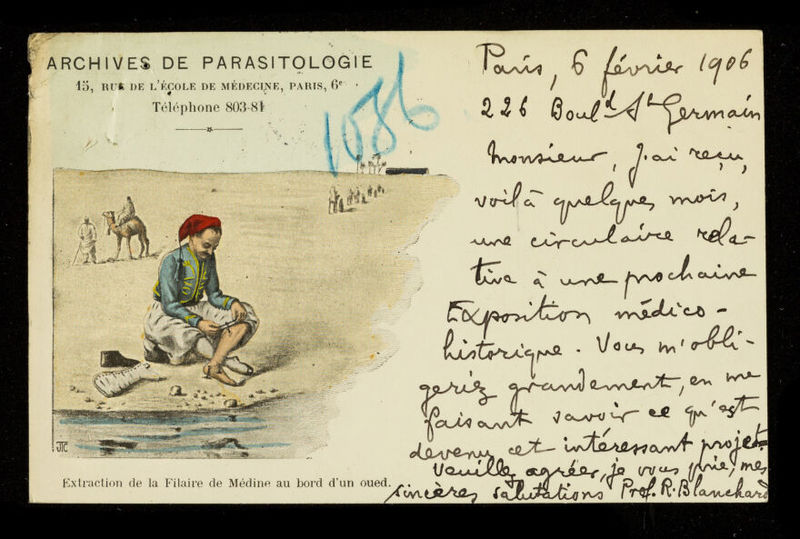 ARCHIVES DE PARASITOLOGIE
15, RUE DE L'ÉCOLE DE MÉDECINE, PARIS, 6e
Téléphone 803-81
1086
JTC
Extraction de la Filaire de Médine au bord d'un oued.
Paris, 6 février 1906
226 Bould St Germain
Monsieur, j'ai reçu,
voilà quelques mois,
une circulaire rela-
tive à une prochaine
Exposition médico-
historique. Vous m'obli-
geriez grandement, en me
faisant savoir ce qu'est
devenu cet intéressant projet.
Veuillez agréer, je vous prie, mes
sincères salutations Prof. R. Blanchard